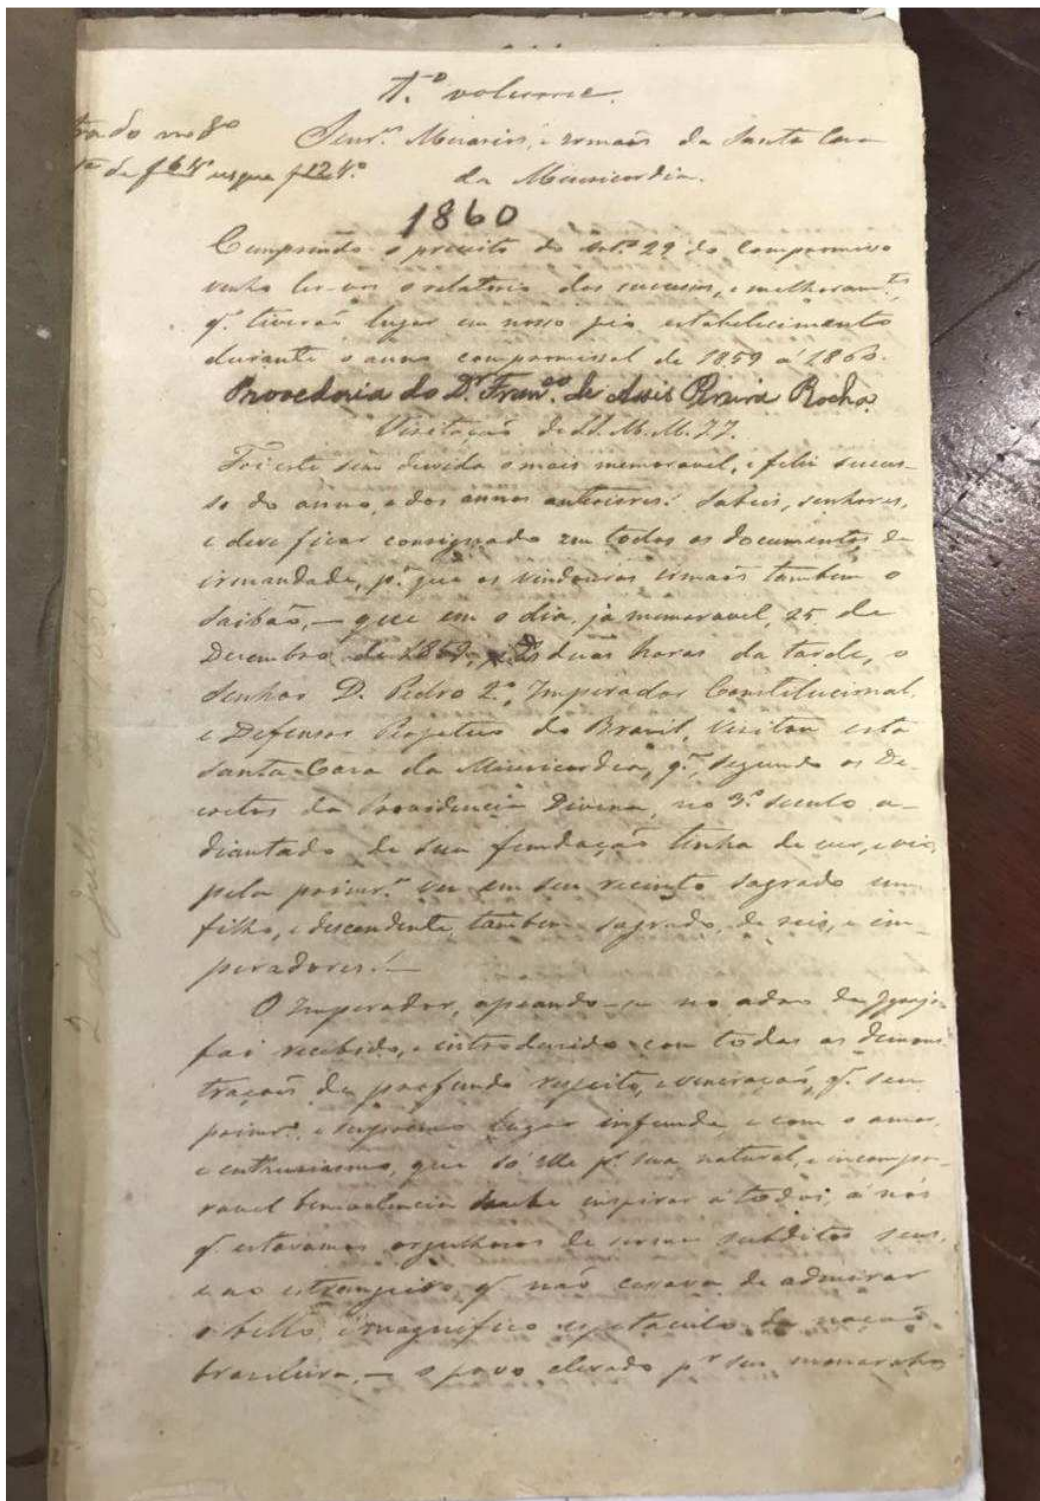 1.º volume.
Senr.es Mesarios, e irmaõs da Santa Casa
da Misericordia.
tra do no 8º
de f 64º usque f 124.º
1860
Cumprindo o preceito do Art.º 29 do Compromisso
venho ler-vos o relatorio dos sucessos, e melhoram.tos,
q.' tiveraõ lugar em nosso pio estabelecimento
durante o anno compromissal de 1859 á 1860.
Provedoria do Dr. Franc.co de Assis Pereira Rocha
Visitaçaõ de SS. M. M. I I.
Foi este sem duvida o mais memoravel, e feliz succes-
so do anno, e dos annos anteriores! Sabeis, senhores,
e deve ficar consignado em todos os documentos da
irmandade, p.ª que os vindouros irmaõs tambem o
saibaõ, — que em o dia, já memoravel, 25 de
Dezembro de 1859, ás duas horas da tarde, o
Senhor D. Pedro 2.º, Imperador Constitucional,
e Defensor Perpetuo do Brasil, visitou esta
Santa Casa da Misericordia, q.', segundo os De-
cretos da Providencia Divina, no 3.º seculo a-
diantado de sua fundaçaõ tinha de ver, e vio,
pela primr.ª vez em seu recinto sagrado um
filho, e descendente, tambem sagrado, de reis, e im-
peradores! —
O Imperador, apeando-se no adro da Igreja
foi recebido, e introdusido com todas as demons
traçoẽs de profundo respeito, e veneraçaõ, q.' seu
primr.º e supremo lugar infunde, e com o amor,
e enthusiasmo, que só elle p.r sua natural, e incompa-
ravel benevolencia sabe inspirar a todos, á nós
q.' estavamos orgulhosos de sermos subditos seus,
e ao estrangeiro q.' naõ cessava de admirar
o bello, e magnifico espetaculo da naçaõ
brasileira, — o povo elevado p.r seu monarcha
2 de Julho